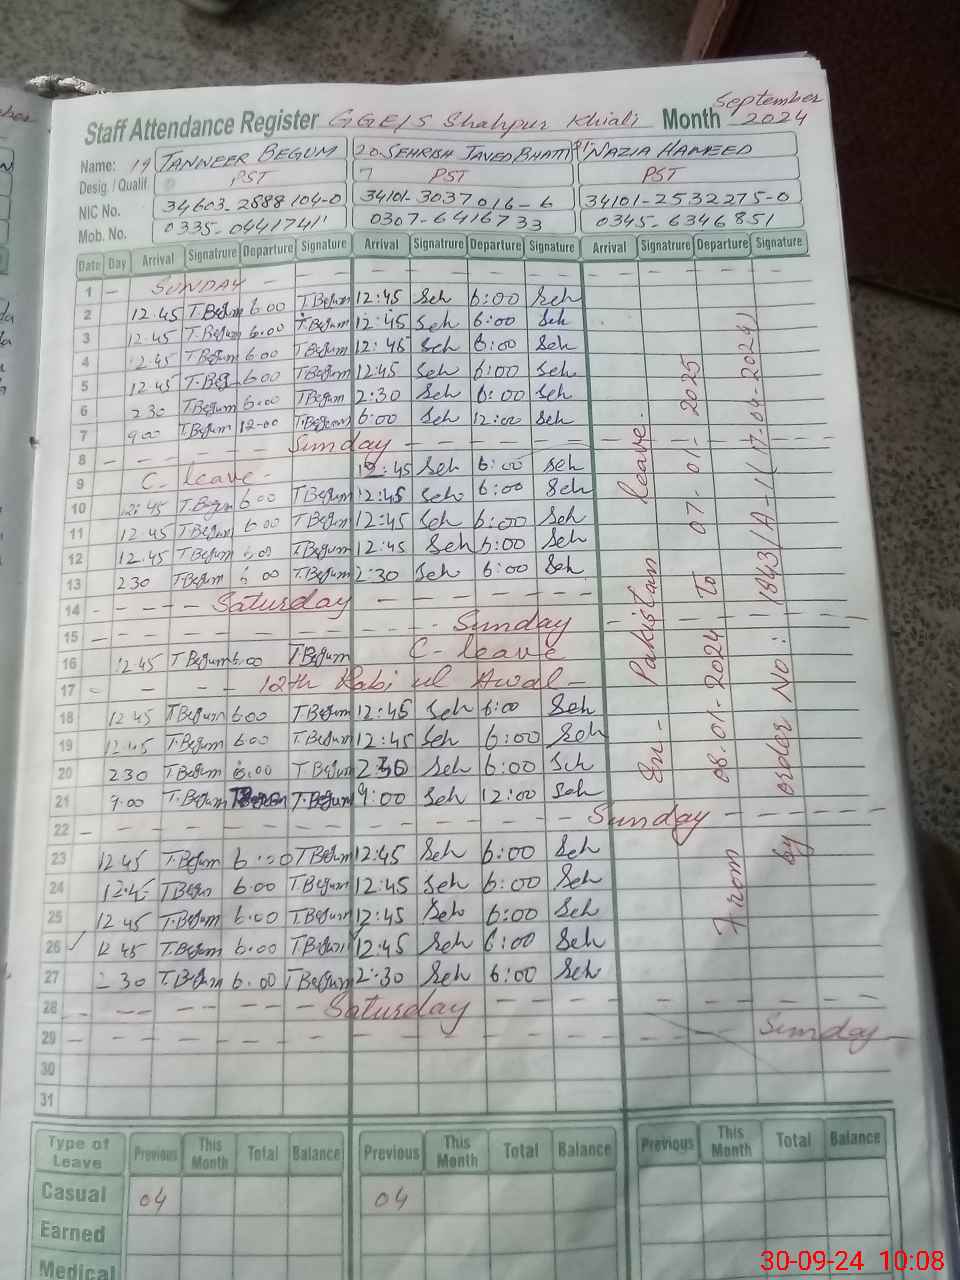 September
Staff Attendance Register GGE/S Shahpur Khiali Month 2024
Name: 19 TANVEER BEGUM 20. SEHRISH JAVED BHATTI 21 NAZIA HAMEED
Desig. / Qualif. PST PST PST
NIC No. 34603-2888104-0 34101-3037016-6 34101-2532275-0
Mob. No. 0335-0441741 0307-6416733 0345-6346851
Date Day Arrival Signatrure Departure Signature Arrival Signatrure Departure Signature Arrival Signatrure Departure Signature
1 SUNDAY
2 12.45 T.Begum 6.00 T.Begum 12:45 Seh 6:00 Seh
3 12.45 T.Begum 6.00 T.Begum 12:45 Seh 6:00 Seh
4 12.45 T.Begum 6.00 T.Begum 12:45 Seh 6:00 Seh
5 12.45 T.Beg 6.00 T.Begum 12:45 Seh 6:00 Seh
6 2 30 T.Begum 6.00 T.Begum 2:30 Seh 6:00 Seh
7 9.00 T.Begum 12.00 T.Begum 6:00 Seh 12:00 Seh
8 Sunday
9 C. leave 12:45 Seh 6:00 Seh
10 12:45 T.Begum 6.00 T.Begum 12:45 Seh 6:00 Seh
11 12.45 T.Begum 6.00 T.Begum 12:45 Seh 6:00 Seh
12 12.45 T.Begum 6.00 T.Begum 12:45 Seh 6:00 Seh
13 2 30 T.Begum 6 00 T.Begum 2:30 Seh 6:00 Seh
14 Saturday
15 Sunday
16 12.45 T.Begum 6.00 T.Begum C-leave
17 12th Rabi ul Awal
18 12 45 T.Begum 6.00 T.Begum 12:45 Seh 6:00 Seh
19 12.45 T.Begum 6.00 T.Begum 12:45 Seh 6:00 Seh
20 2 30 T.Begum 6.00 T.Begum 2 30 Seh 6:00 Seh
21 9.00 T.Begum T.Begum 9:00 Seh 12:00 Seh
22 Sunday
23 12 45 T.Begum 6.00 T.Begum 12:45 Seh 6:00 Seh
24 12.45 T.Begum 6.00 T.Begum 12:45 Seh 6:00 Seh
25 12 45 T.Begum 6.00 T.Begum 12:45 Seh 6:00 Seh
26 12 45 T.Begum 6.00 T.Begum 12:45 Seh 6:00 Seh
27 2 30 T.Begum 6.00 T.Begum 2:30 Seh 6:00 Seh
28 Saturday
29 Sunday
30
31
Ex- Pakistan leave.
From 08-01-2024 To 07-01-2025
by order No: 1843/A-1(17-04-2024)
Type of Leave Previous This Month Total Balance Previous This Month Total Balance Previous This Month Total Balance
Casual 04 04
Earned
Medical
30-09-24 10:08